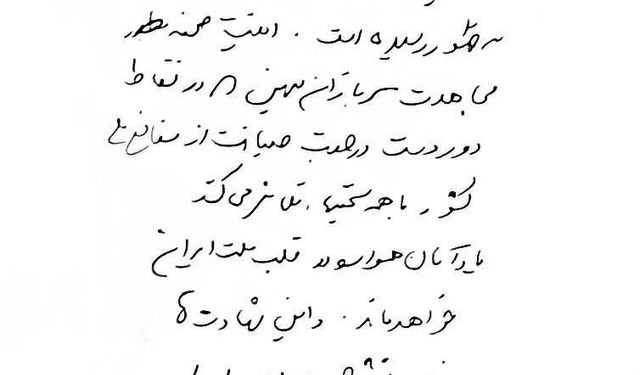 کشور رسیده است. امنیت
مجاهدت سربازان میهن در نقاط
دوردست در جهت صیانت از منافع ملی
کشور با همه سختیها، تلاش می‌کند
یاد آنان همواره در قلب ملت ایران
خواهد ماند. و این شهادت ها